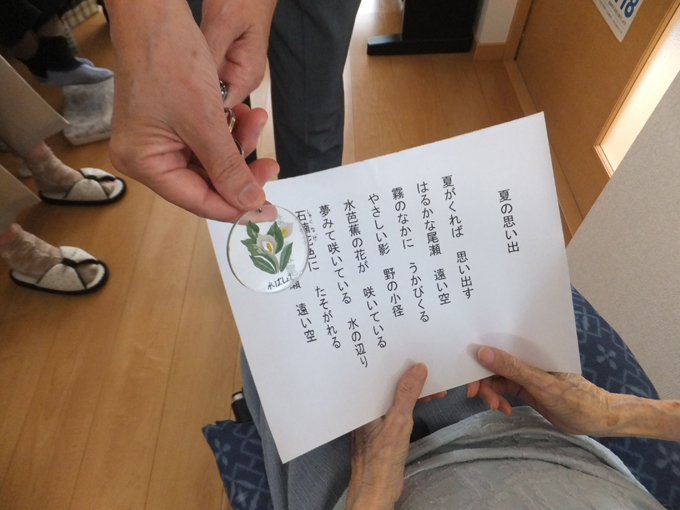 夏の思い出
夏がくれば 思い出す
はるかな尾瀬 遠い空
霧のなかに うかびくる
やさしい影 野の小径
水芭蕉の花が 咲いている
夢みて咲いている 水の辺り
石楠花色に たそがれる
瀬 遠い空
水ばしょう
18